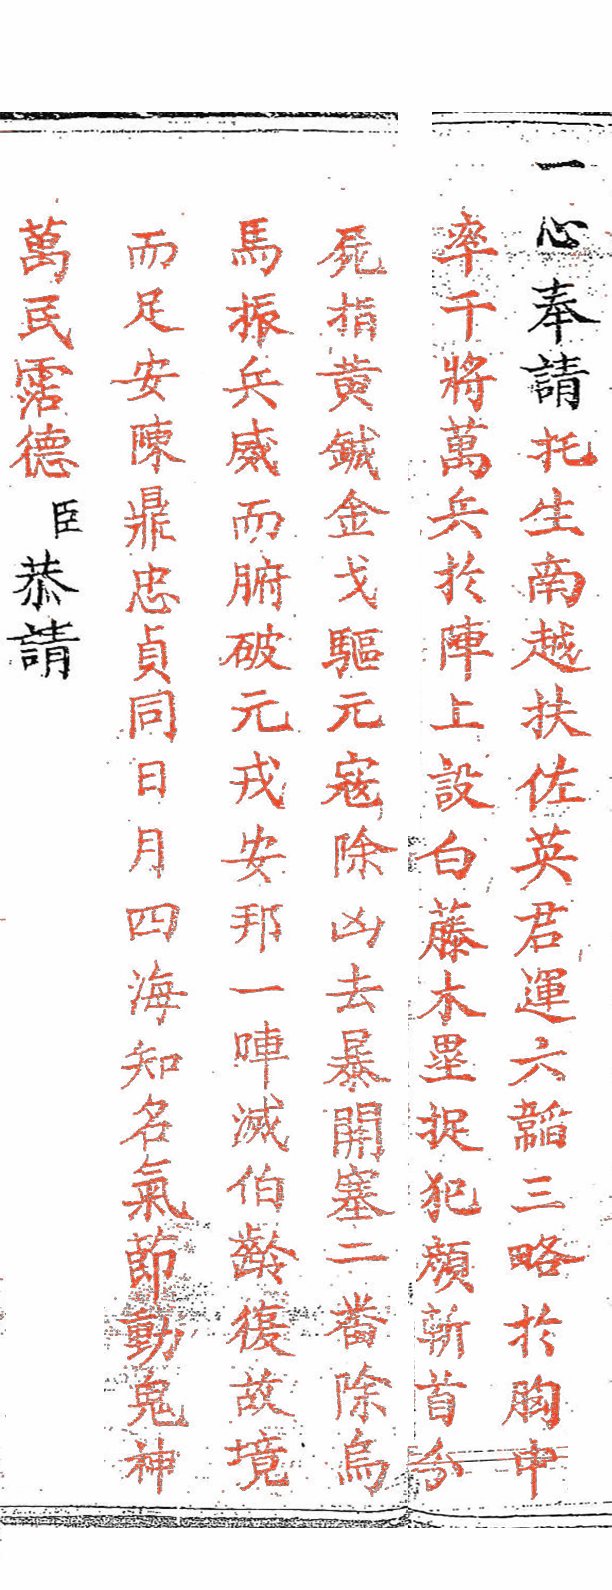 一心奉請托生南越扶佐英君運六韜三略於胸中
率千將萬兵於陣上設白藤木壘捉犯顏斬首分
屍指黃鉞金戈驅元寇除凶去暴開塞二畨除烏
馬振兵威而腑破元戎安邦一陣滅伯齡復故境
而足安陳鼎忠貞同日月四海知名氣節動鬼神
萬民霑德臣恭請